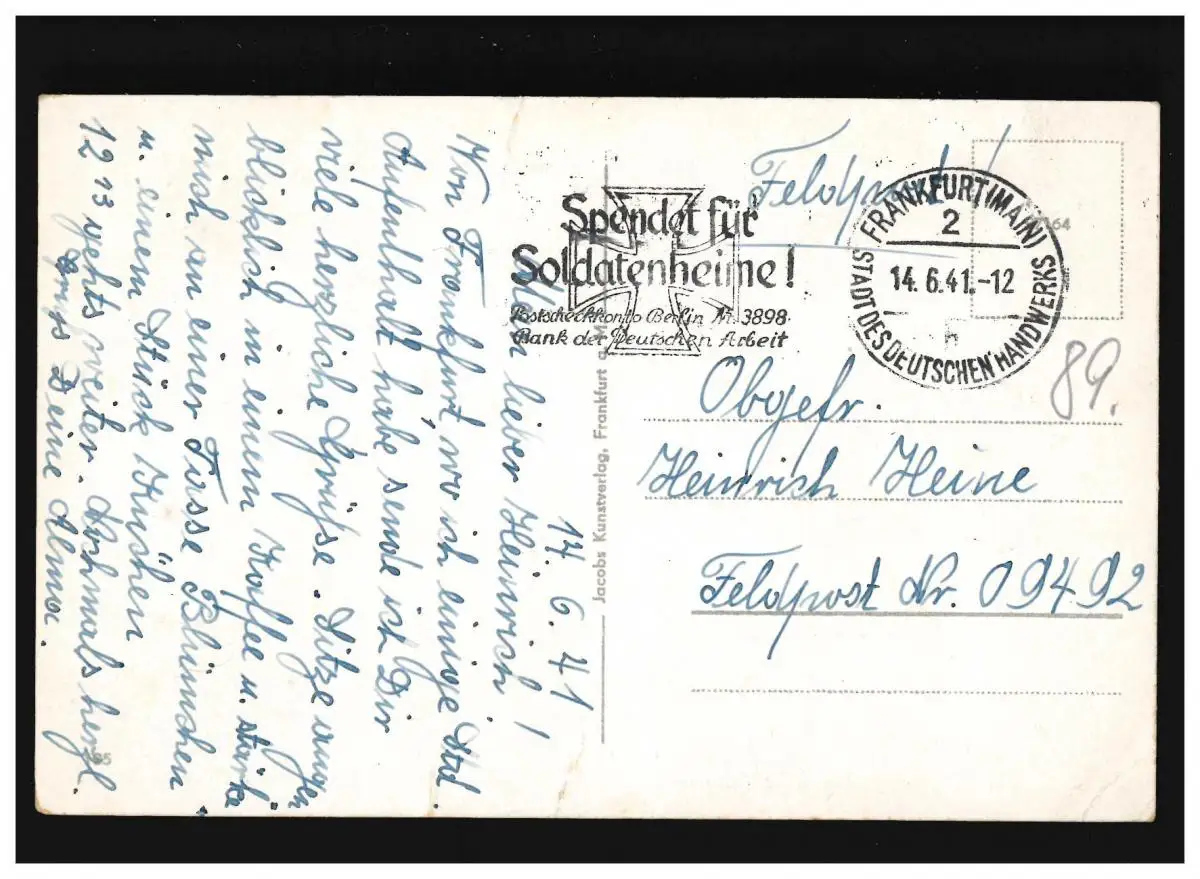 Feldpost!
Spendet für
Soldatenheime!
Postscheckkonto Berlin Nr. 3898
Bank der Deutschen Arbeit
FRANKFURT (MAIN)
2
14.6.41.-12
h
STADT DES DEUTSCHEN HANDWERKS
89.
Obgefr.
Heinrich Heine
Feldpost Nr. 09492
Jacobs Kunstverlag, Frankfurt a. M.
14. 6. 41
Mein lieber Heinrich!
Von Frankfurt, wo ich einige Std.
Aufenthalt habe sende ich Dir
viele herzliche Grüße. Sitze augen
blicklich in einem Kaffee u. stärke
mich an einer Tasse Blümchen
u. einem Stück Kuchen
12 13 gehts weiter. Nochmals herzl.
Gruß Deine Alma.